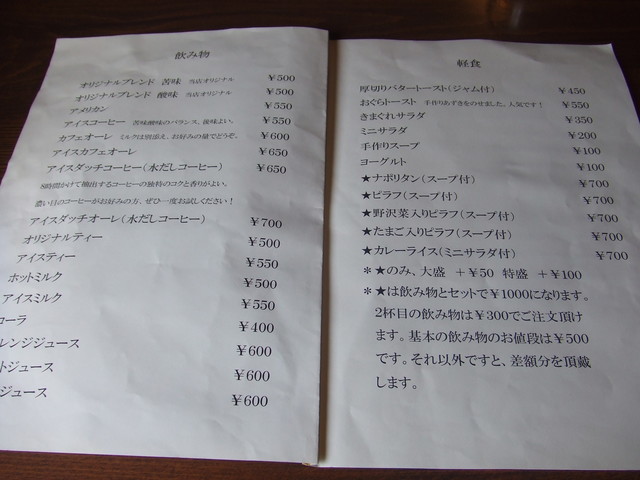 飲み物
オリジナルブレンド 苦味 当店オリジナル ¥500
オリジナルブレンド 酸味 当店オリジナル ¥500
アメリカン ¥550
アイスコーヒー 苦味酸味のバランス、後味よい。 ¥550
カフェオーレ ミルクは別添え、お好みの量でどうぞ。 ¥600
アイスカフェオーレ ¥650
アイスダッチコーヒー(水だしコーヒー) ¥650
8時間かけて抽出するコーヒーの独特のコクと香りがよい。
濃い目のコーヒーがお好みの方、ぜひ一度お試しください！
アイスダッチオーレ(水だしコーヒー) ¥700
オリジナルティー ¥500
アイスティー ¥550
ホットミルク ¥500
アイスミルク ¥550
コーラ ¥400
レンジジュース ¥600
トジュース ¥600
ジュース ¥600
軽食
厚切りバタートースト(ジャム付) ¥450
おぐらトースト 手作りあずきをのせました。人気です！ ¥550
きまぐれサラダ ¥350
ミニサラダ ¥200
手作りスープ ¥100
ヨーグルト ¥100
★ナポリタン(スープ付) ¥700
★ピラフ(スープ付) ¥700
★野沢菜入りピラフ(スープ付) ¥700
★たまご入りピラフ(スープ付) ¥700
★カレーライス(ミニサラダ付) ¥700
＊★のみ、大盛 ＋¥50 特盛 ＋¥100
＊★は飲み物とセットで¥1000になります。
2杯目の飲み物は¥300でご注文頂け
ます。基本の飲み物のお値段は¥500
です。それ以外ですと、差額分を頂戴
します。